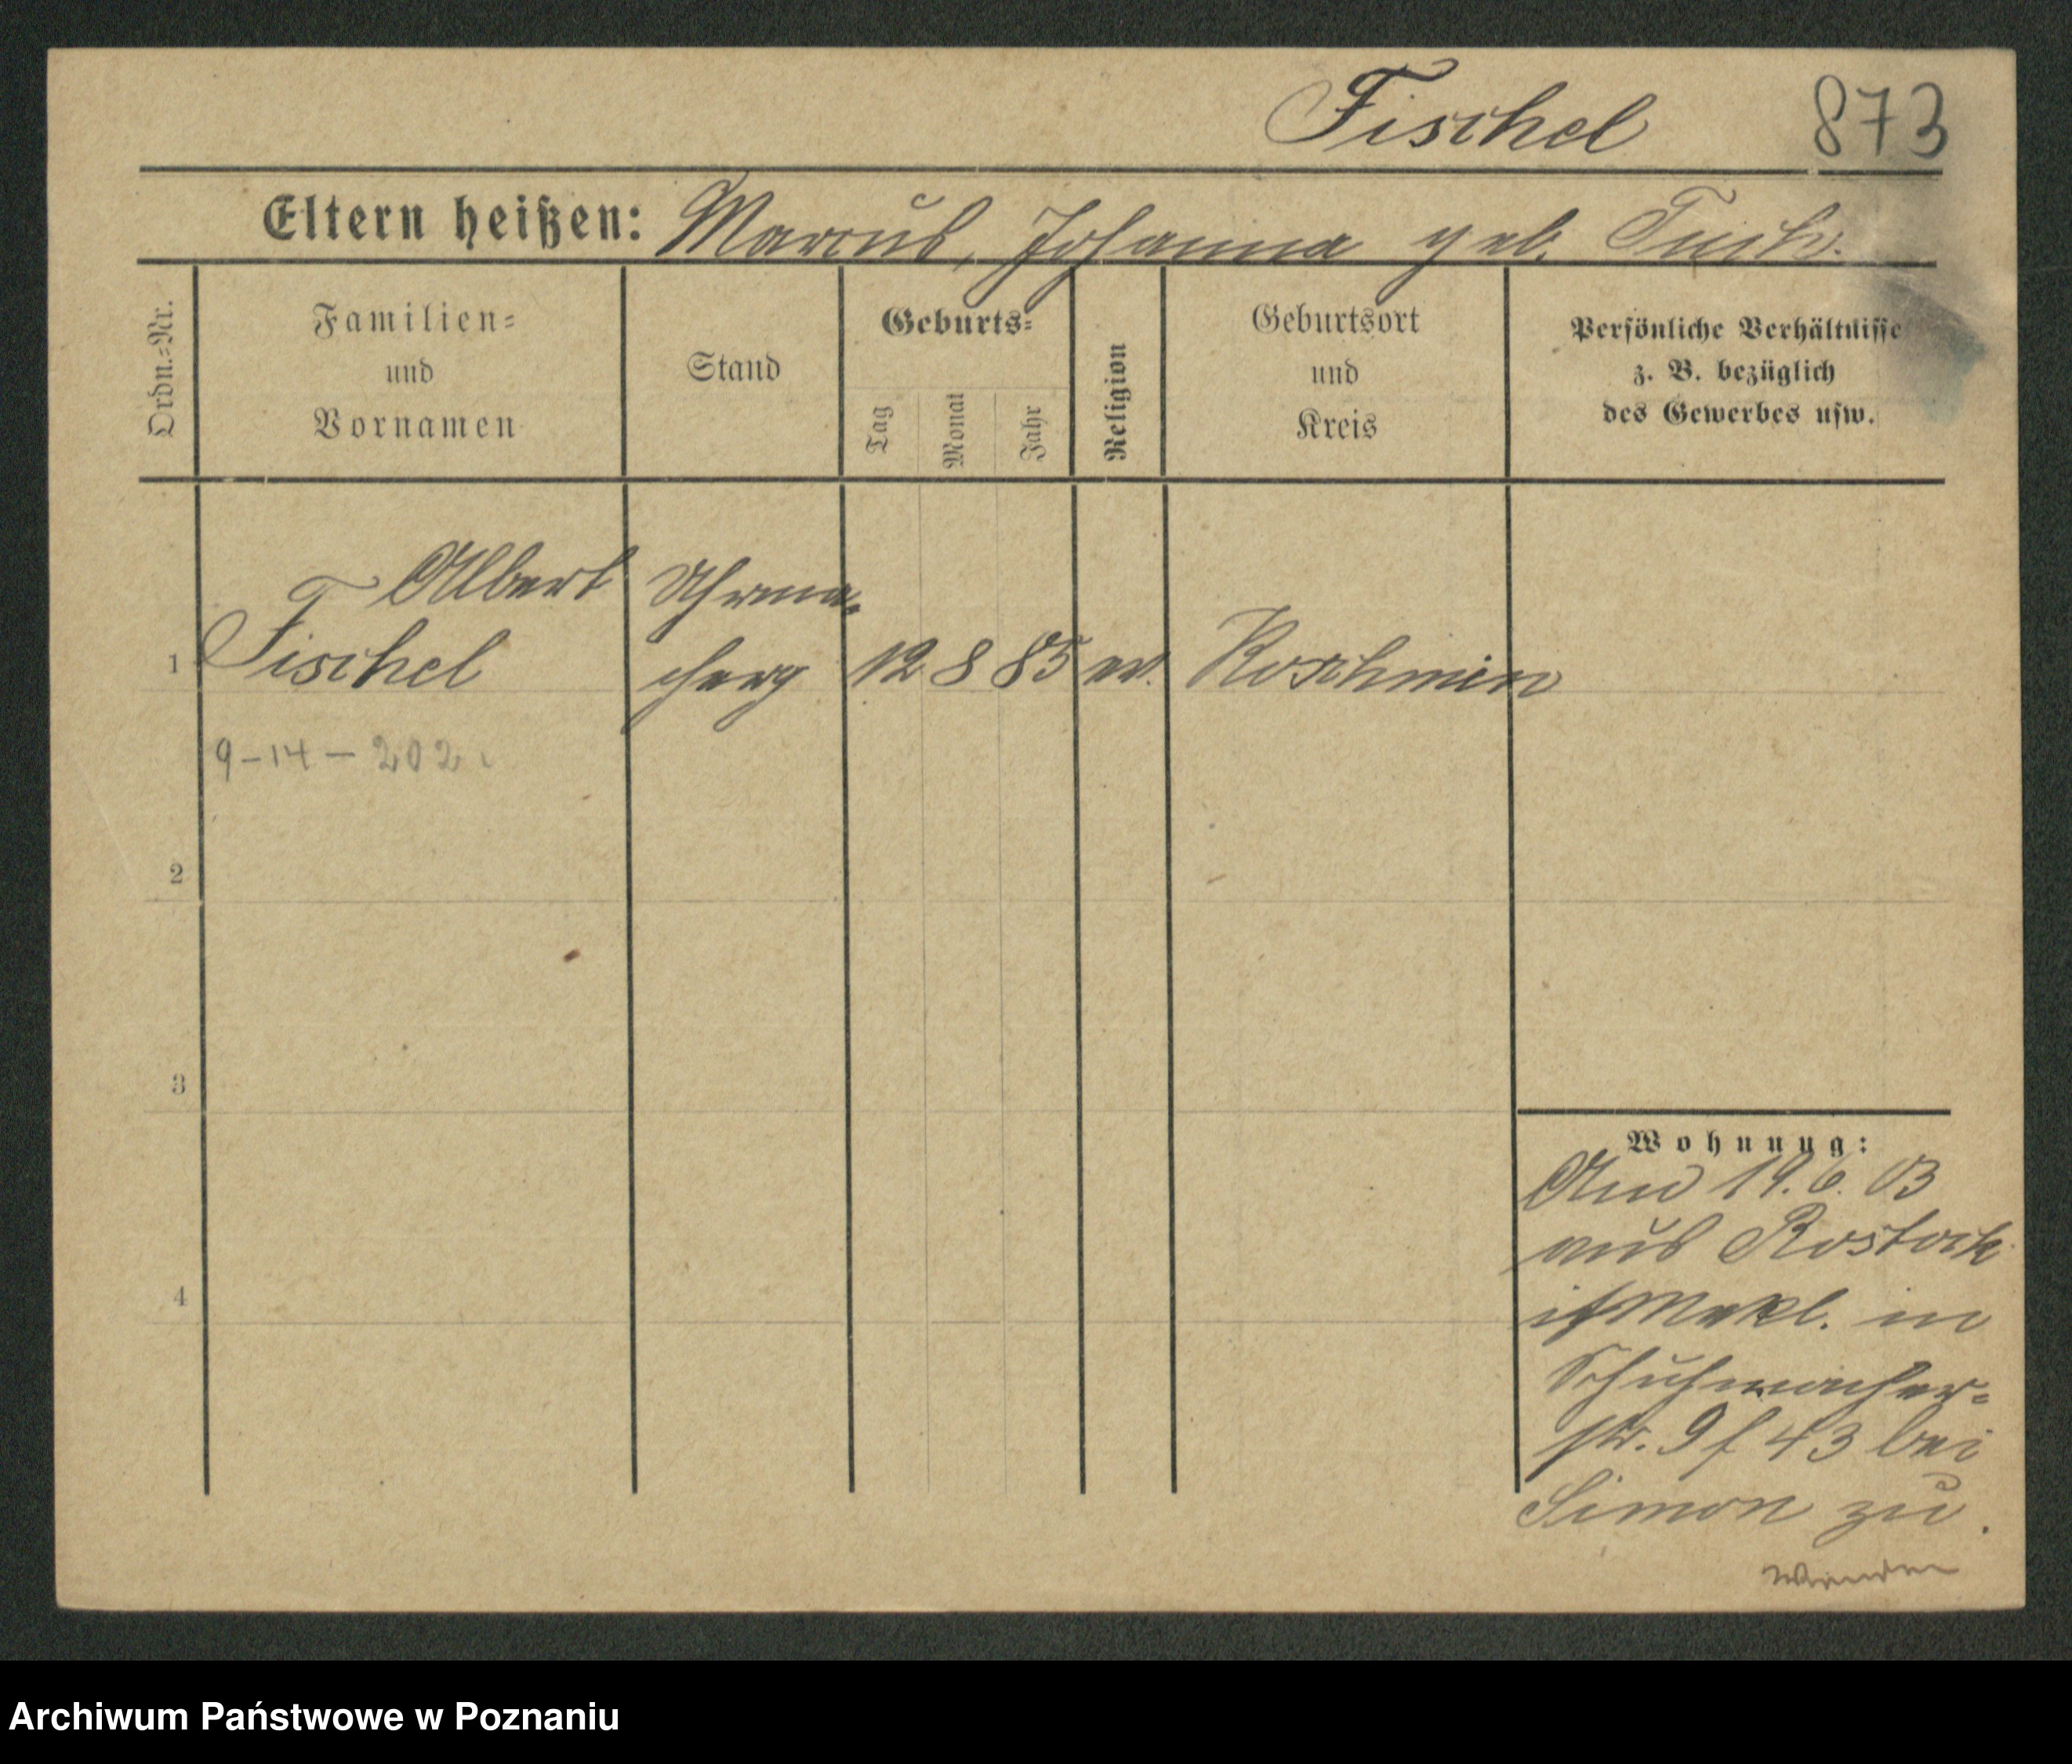 Fischel 873
Eltern heißen: Marcus, Johanna geb.
Ordn.-Nr.
Familien-
und
Vornamen
Stand
Geburts-
Tag
Monat
Jahr
Religion
Geburtsort
und
Kreis
Persönliche Verhältnisse
z. B. bezüglich
des Gewerbes usw.
Albert
1 Fischel
Uhrma-
12 8 85
Koschmin
9-14-202
2
3
4
Wohnung:
19.6.03
aus Rostock
Mekl. in
Schuhmacher-
str. 9 f 43 bei
Simon zu.
Wenden
Archiwum Państwowe w Poznaniu